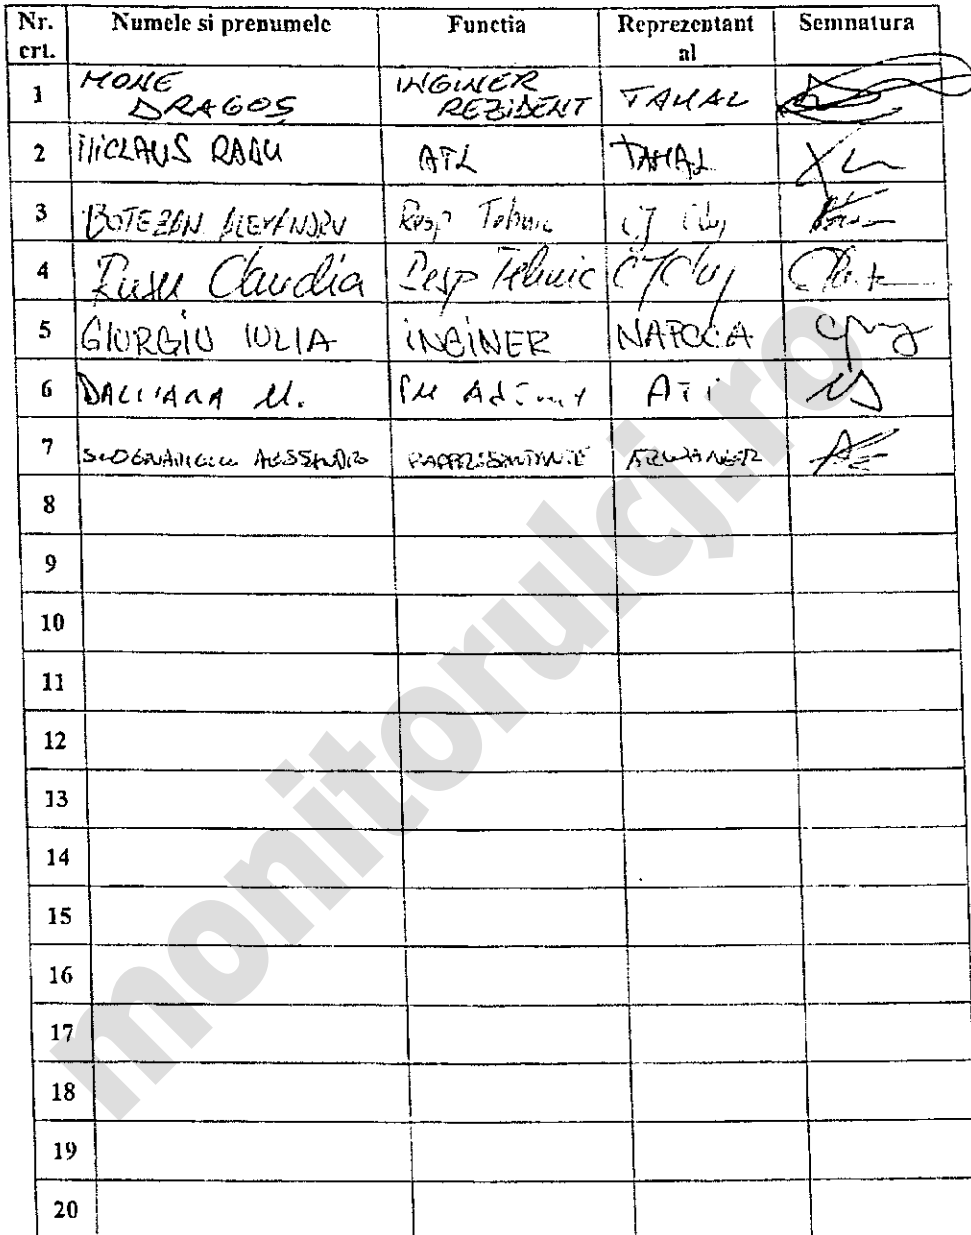 Nr. crt. Numele si prenumele Functia Reprezentant al Semnatura
1 MONE DRAGOȘ INGINER REZIDENT TAHAL
2 NICLAUS RADU ATL TAHAL
3 BOTEZAN ALEXANDRU Resp Tehnic CJ Cluj
4 Rusu Claudia Resp Tehnic CJ Cluj
5 GIURGIU IULIA INGINER NAPOCA
6 M. PM
7
8
9
10
11
12
13
14
15
16
17
18
19
20
monitorulcj.ro